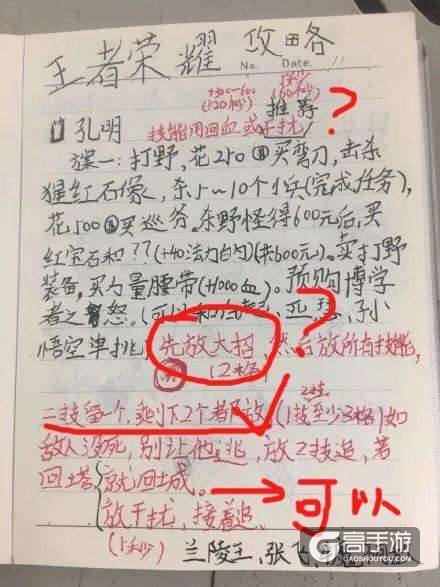 王者荣耀 攻略
No. Date. 11
+300~600
(120秒)
5秒
(60秒)
推荐
?
孔明 技能用回血或干扰
方案一:打野,花250买弯刀,击杀
猩红石像,杀5~10个小兵(完成任务),
花500买巡务.杀野怪得600元后,买
红宝石和??(+40法力白闪)(共600元)。卖打野
装备,买力量腰带(+1000血)。预购博学
者之怒。(可以和白起、亚瑟、孙
悟空单挑 先放大招,然后放所有技能,
?
(2格)
二技留一个,剩下2个都放。(1技至少3格)如
2技
敌人没死,别让他逃,放2技追,若
回塔 就回城。
可以
放干扰,接着追。
(5秒)
兰陵王,张飞
高手游
GAOSHOUYOU.COM